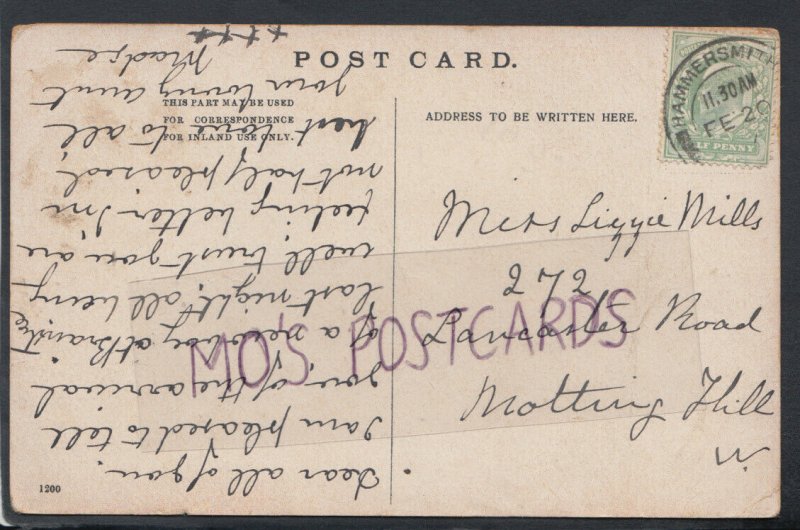 POST CARD.
THIS PART MAY BE USED
FOR CORRESPONDENCE
FOR INLAND USE ONLY.
ADDRESS TO BE WRITTEN HERE.
HAMMERSMITH
11.30 AM
FE 20
HALF PENNY
Miss Lizzie Mills
272
Lancaster Road
Notting Hill
W
Dear all of you.
I am pleased to tell
you, of the arrival
of a new boy at
last night, all being
well, trust you are
feeling better, I'm
not half pleased,
best love to all,
your loving aunt
Madge
++++
1200
MO'S POSTCARDS